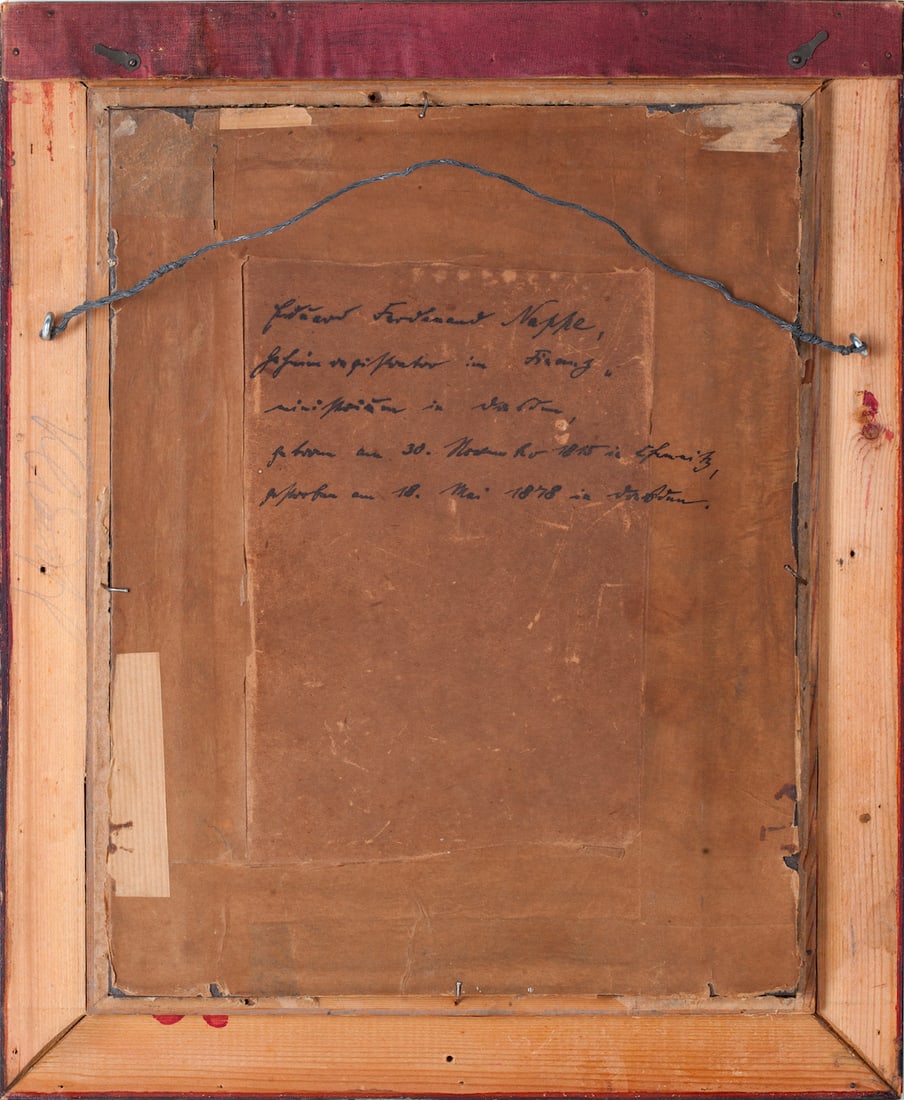 Eduard Ferdinand Nappe,
Geheimregistrator im Finanz-
ministerium in Dresden,
geboren am 30. November 1815 in Chemnitz,
gestorben am 18. Mai 1878 in Dresden.